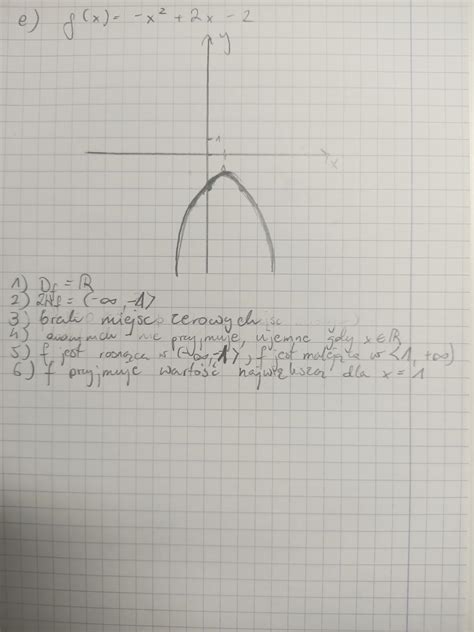 e) f(x) = -x² + 2x - 2
y
1
x
1
1) Df = ℝ
2) ZWf = (-∞, -1>
3) brak miejsc zerowych
4) nie przyjmuje, ujemne gdy x∈ℝ
5) f jest rosnąca w (-∞, 1>, f jest malejąca w <1, +∞)
6) f przyjmuje wartość największą dla x = 1